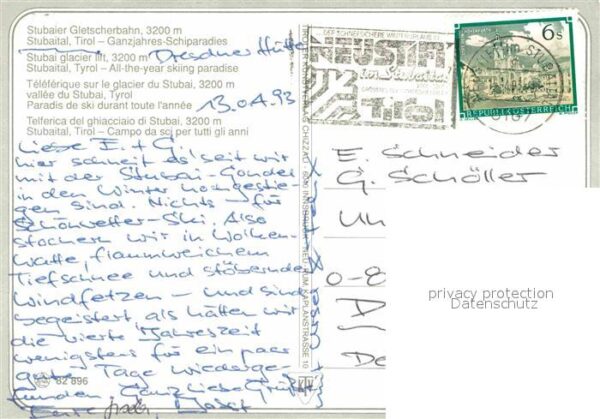 Stubaier Gletscherbahn, 3200 m
Stubaital, Tirol – Ganzjahres-Schiparadies
Dresdner Hütte
Stubai glacier lift, 3200 m
Stubaital, Tyrol – All-the-year skiing paradise
Téléférique sur le glacier du Stubai, 3200 m
vallée du Stubai, Tyrol
Paradis de ski durant toute l'année
13.04.93
Telferica del ghiacciaio di Stubai, 3200 m
Stubaital, Tirol – Campo da sci per tutti gli anni
Liebe E. + G.!
hier schneit es seit wir
mit der Stubai-Gondel
in den Winter hochgestie-
gen sind. Nichts – für
Schönwetter-Ski. Also
stochern wir in Wolken-
watte, flaumweichem
Tiefschnee und stöbernden
Windfetzen – und sind
begeistert als hätten wir
die vierte Jahreszeit
wenigstens für ein paar
gute Tage wiederge-
funden. Ganz liebe Grüße
Eure
82 896
NEUSTIFT
im Stubaital
Tirol
6 s
REPUBLIK ÖSTERREICH
E. Schneider
G. Schöller
Uh
0-8
D
De
privacy protection
Datenschutz